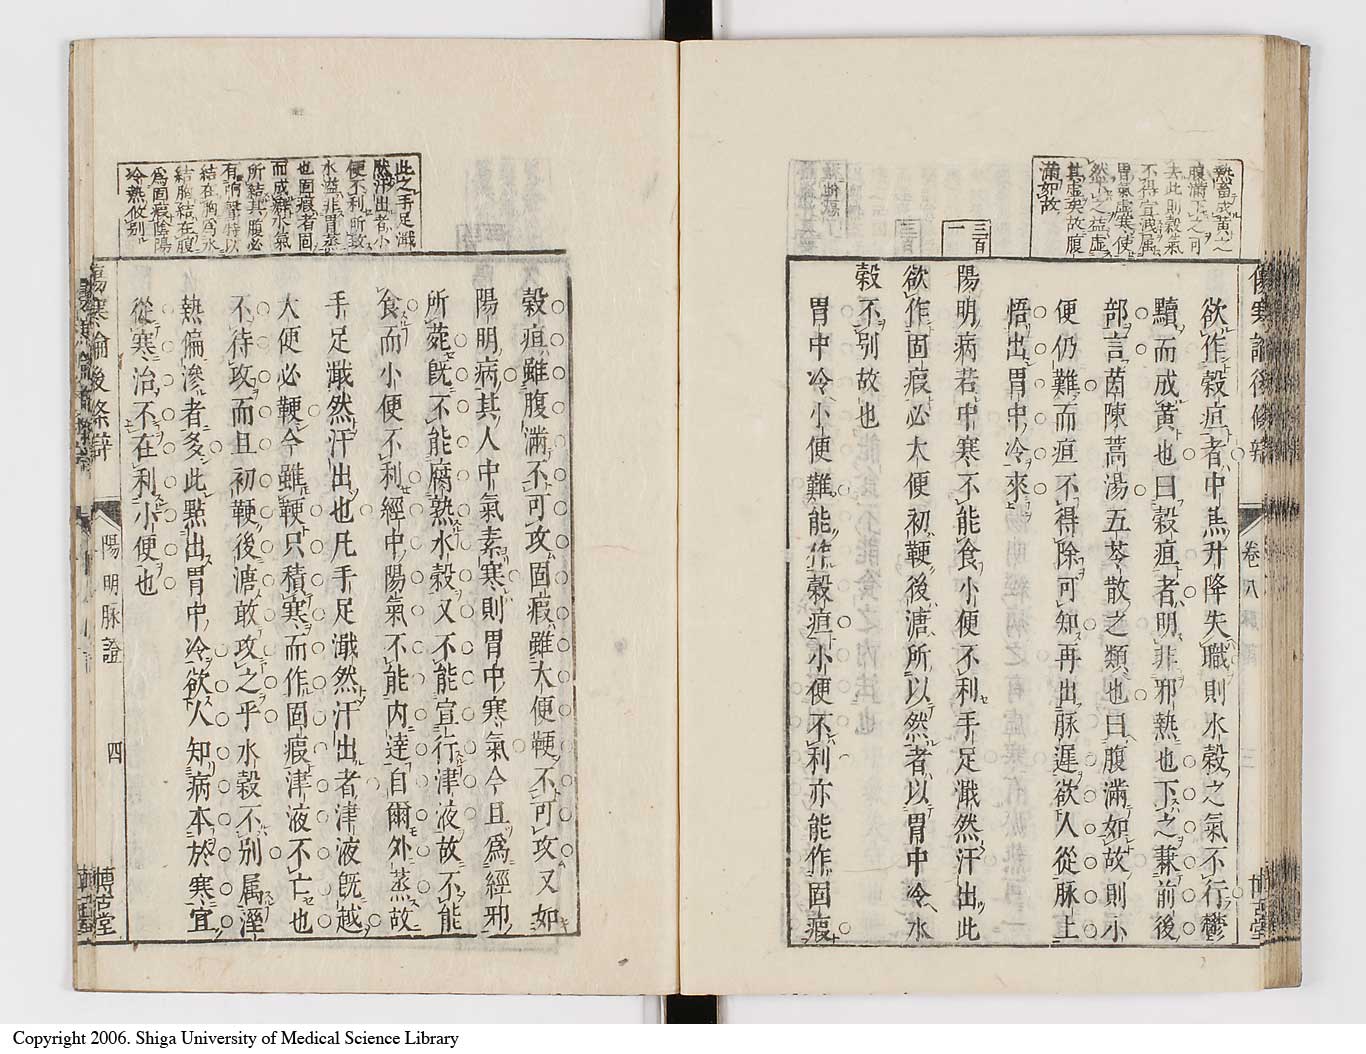 熱畜成黃之
腹滿下之可
去此則穀氣
不得宣泄属
胃氣虛寒使
然下之益虛
其虛矣故腹
滿如故
三百
一
傷寒論後條辨
卷八
博古堂
欲作穀疸者中焦升降失職則水穀之氣不行鬱
黷而成黃也曰穀疸者明非邪熱也下之兼前後
部言茵陳蒿湯五苓散之類也曰腹滿如故則小
便仍難而疸不得除可知再出脉遲欲人從脉上
悟出胃中冷來
陽明病若中寒不能食小便不利手足濈然汗出此
欲作固瘕必大便初鞕後溏所以然者以胃中冷水
穀不別故也
胃中冷小便難能作穀疸小便不利亦能作固瘕
此之手足濈
然汗出者小
便不利所致
水溢非胃蒸
也固瘕者固
而成癖水氣
所結其腹必
有響特以
結在胸爲水
結胸結在腹
爲固瘕陰陽
冷熱攸別
穀疸雖腹滿不可攻固瘕雖大便鞕不可攻又如
陽明病其人中氣素寒則胃中寒氣今且爲經邪
所菀旣不能腐熟水穀又不能宣行津液故不能
食而小便不利經中陽氣不能內達自爾外蒸故
手足濈然汗出也凡手足濈然汗出者津液旣越
大便必鞕今雖鞕只積寒而作固瘕津液不亡也
不待攻而且初鞕後溏敢攻之乎水穀不別属溼
熱偏滲者多此點出胃中冷欲人知病本於寒宜
從寒治不在利小便也
傷寒論後條辨
陽明脉證
四
博古堂
Copyright 2006. Shiga University of Medical Science Library